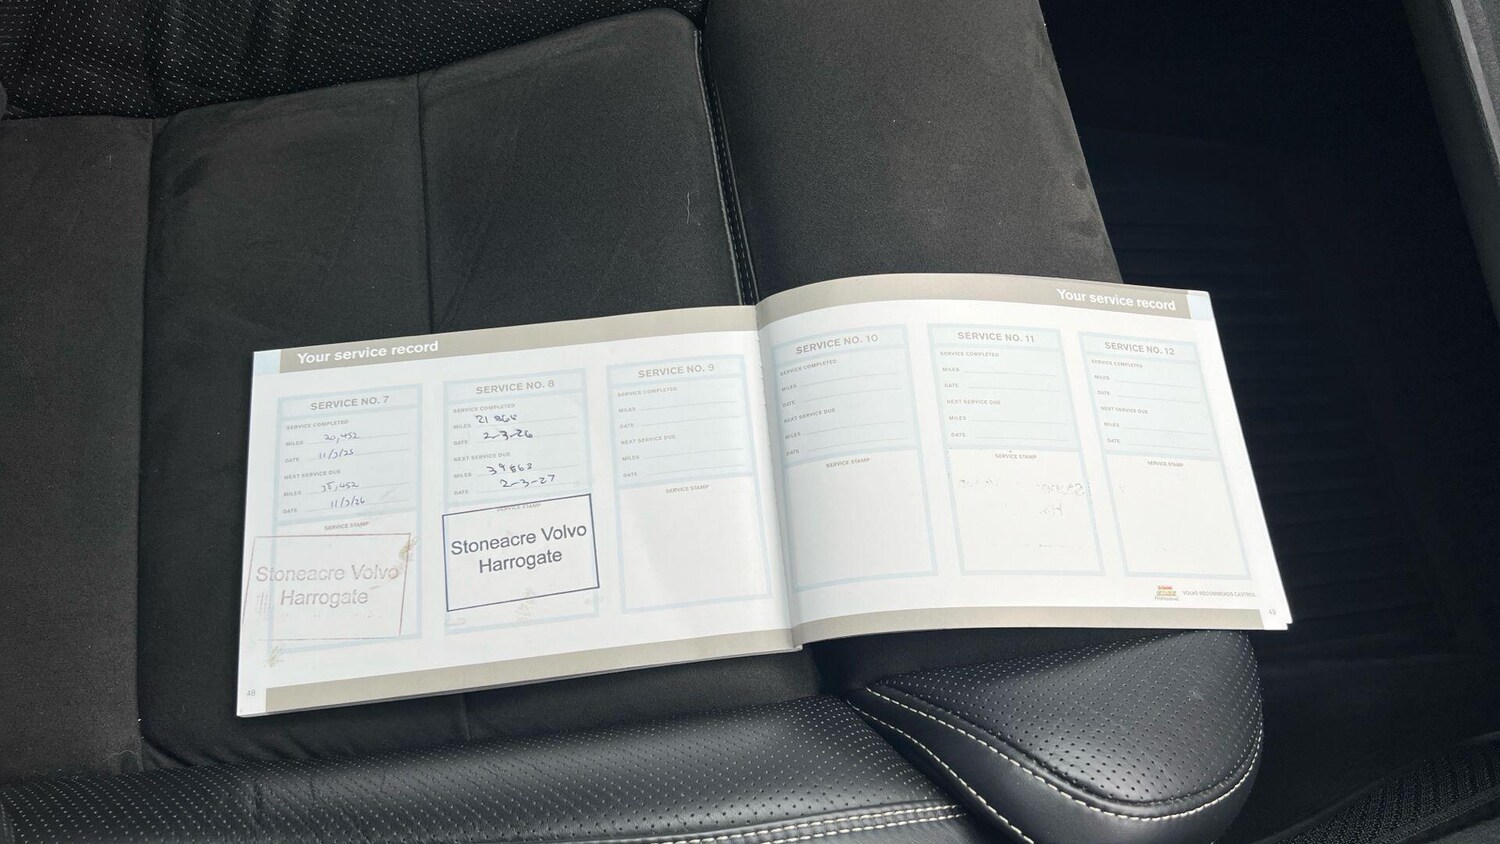 Your service record
SERVICE NO. 7
SERVICE COMPLETED
MILES 20,452
DATE 11/3/25
NEXT SERVICE DUE
MILES 38,452
DATE 11/3/26
SERVICE STAMP
Stoneacre Volvo
Harrogate
SERVICE NO. 8
SERVICE COMPLETED
MILES 21 868
DATE 2-3-26
NEXT SERVICE DUE
MILES 39868
DATE 2-3-27
SERVICE STAMP
Stoneacre Volvo
Harrogate
SERVICE NO. 9
SERVICE COMPLETED
MILES
DATE
NEXT SERVICE DUE
MILES
DATE
SERVICE STAMP
48
Your service record
SERVICE NO. 10
SERVICE COMPLETED
MILES
DATE
NEXT SERVICE DUE
MILES
DATE
SERVICE STAMP
SERVICE NO. 11
SERVICE COMPLETED
MILES
DATE
NEXT SERVICE DUE
MILES
DATE
SERVICE STAMP
SERVICE NO. 12
SERVICE COMPLETED
MILES
DATE
NEXT SERVICE DUE
MILES
DATE
SERVICE STAMP
VOLVO RECOMMENDS CASTROL
49